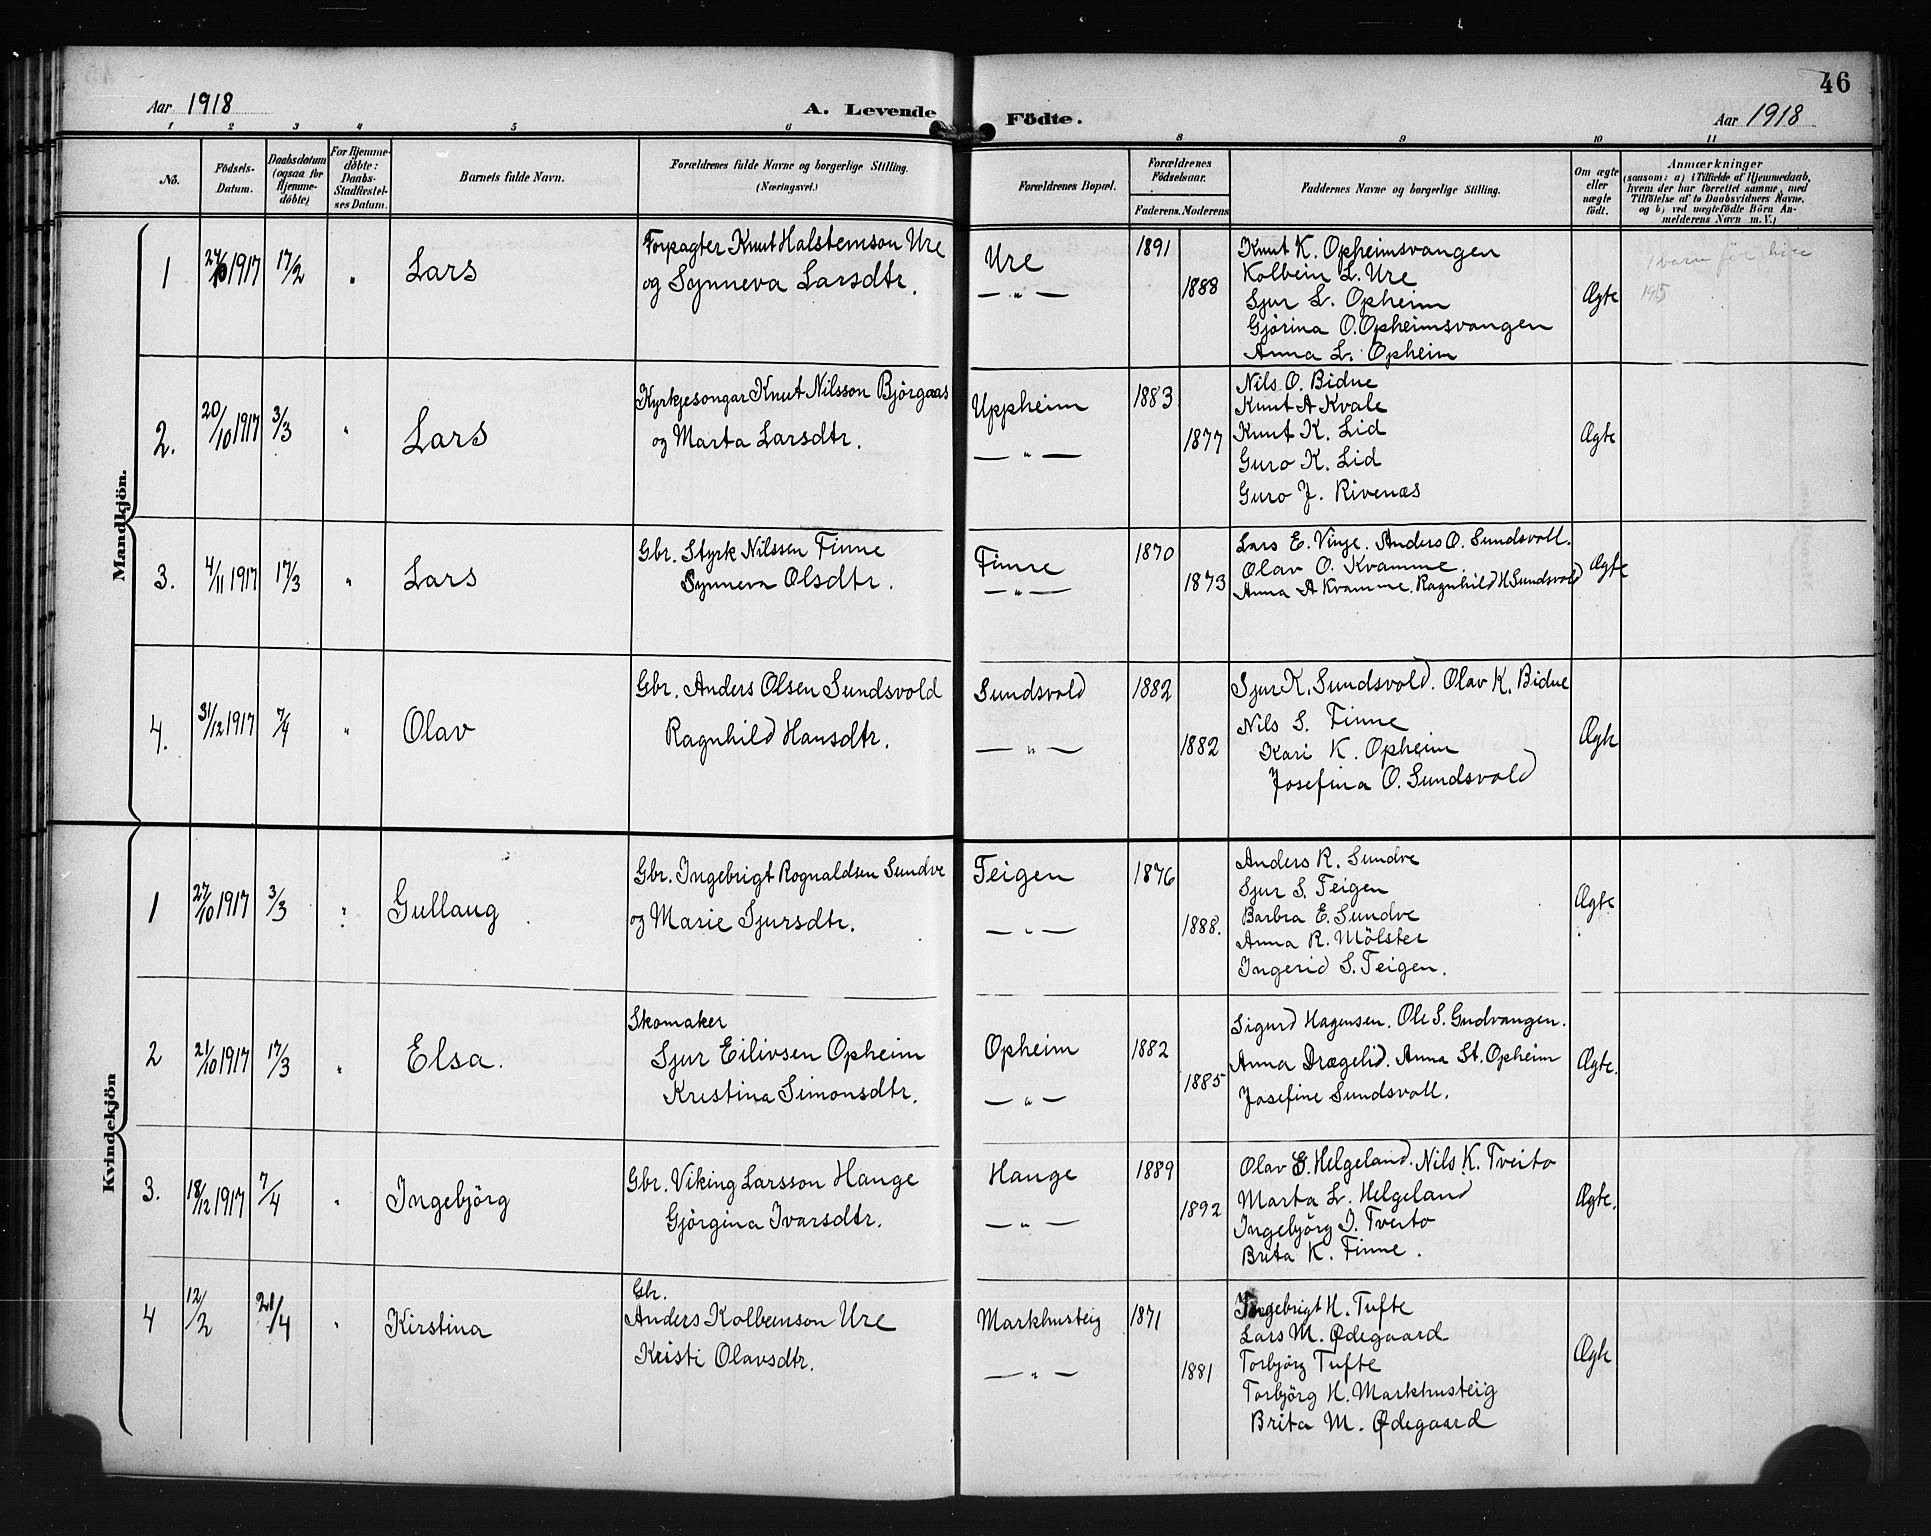 46
Aar 1918 A. Levende Födte. Aar 1918
1 2 3 4 5 6 8 9 10 11
No.
Födsels-Datum.
Daabsdatum (ogsaa for Hjemme-döbte)
For Hjemme-döbte: Daabs-Stadfæstel-ses Datum.
Barnets fulde Navn.
Forældrenes fulde Navne og borgerlige Stilling. (Næringsvei.)
Forældrenes Bopæl.
Forældrenes Födselsaar.
Faderens. Moderens
Faddernes Navne og borgerlige Stilling.
Om ægte eller uægte födt.
Anmærkninger
(saasom: a) i Tilfælde af Hjemmedaab, hvem der har forrettet samme, med Tilföielse af to Daabsvidners Navne, og b) ved uægtefödte Börn An-melderens Navn m. V.)
Mandkjön.
1 1917 17/2 " Lars
Forpagter Knut Halstemson Ure
og Synneva Larsdtr.
Ure
— " —
1891
1888
Knut K. Opheimsvangen
Kolbein L. Ure
Sjur L. Opheim
Gjörina O. Opheimsvangen
Anna L. Opheim
Ægte
1 barn før
1915
2. 20/10 1917 3/3 " Lars
Kyrkjesongar Knut Nilsson Björgaas
og Marta Larsdtr.
Uppheim
— " —
1883
1877
Nils O. Bidne
Knut A Kvale
Knut K. Lid
Guro K. Lid
Guro J. Rivenæs
Ægte
3. 4/11 1917 17/3 " Lars
Gbr. Styrk Nilssen Finne
Synneva Olsdtr.
Finne
— " —
1870
1873
Lars E. Vinje. Anders O. Sundsvoll.
Olav O. Kvamme.
Anna A Kvamme. Ragnhild H Sundsvold
Ægte
4. 31/12 1917 7/4 " Olav
Gbr. Anders Olsen Sundsvold
Ragnhild Hansdtr.
Sundsvold
— " —
1882
1882
Sjur K. Sundsvold. Olav K. Bidne
Nils S. Finne
Kari K. Opheim
Josefina O. Sundsvold
Ægte
Kvindekjön
1 27/10 1917 3/3 " Gullaug
Gbr. Ingebrigt Rognaldsen Sundve
og Marie Sjursdtr.
Teigen
— " —
1876
1888.
Anders R. Sundve
Sjur S. Teigen
Barbra E. Sundve
Anna R. Mölster
Ingerid S. Teigen.
Ægte
2 21/10 1917 17/3 " Elsa.
Skomaker
Sjur Eilivsen Opheim
Kristina Simonsdtr.
Opheim
— " —
1882
1885
Sigurd Hagensen. Ole S. Gudvangen.
Anna Drægelid. Anna St. Opheim
Josefine Sundsvoll.
Ægte.
3. 18/12 1917 7/4 " Ingebjörg
Gbr. Viking Larsson Hauge
Gjörgina Ivarsdtr.
Hauge
— " —
1889
1892
Olav G. Helgeland. Nils K. Tveito
Marta L. Helgeland
Ingebjörg I. Tveito
Brita K. Finne.
Ægte.
4 12/2 21/4 " Kirstina
Gbr.
Anders Kolbeinson Ure
Kristi Olavsdtr.
Markhusteig
— " —
1871
1881
Ingebrigt H. Tufte
Lars M. Ødegaard
Torbjörg Tufte
Torbjörg H. Markhusteig
Brita M. Ødegaard
Ægte